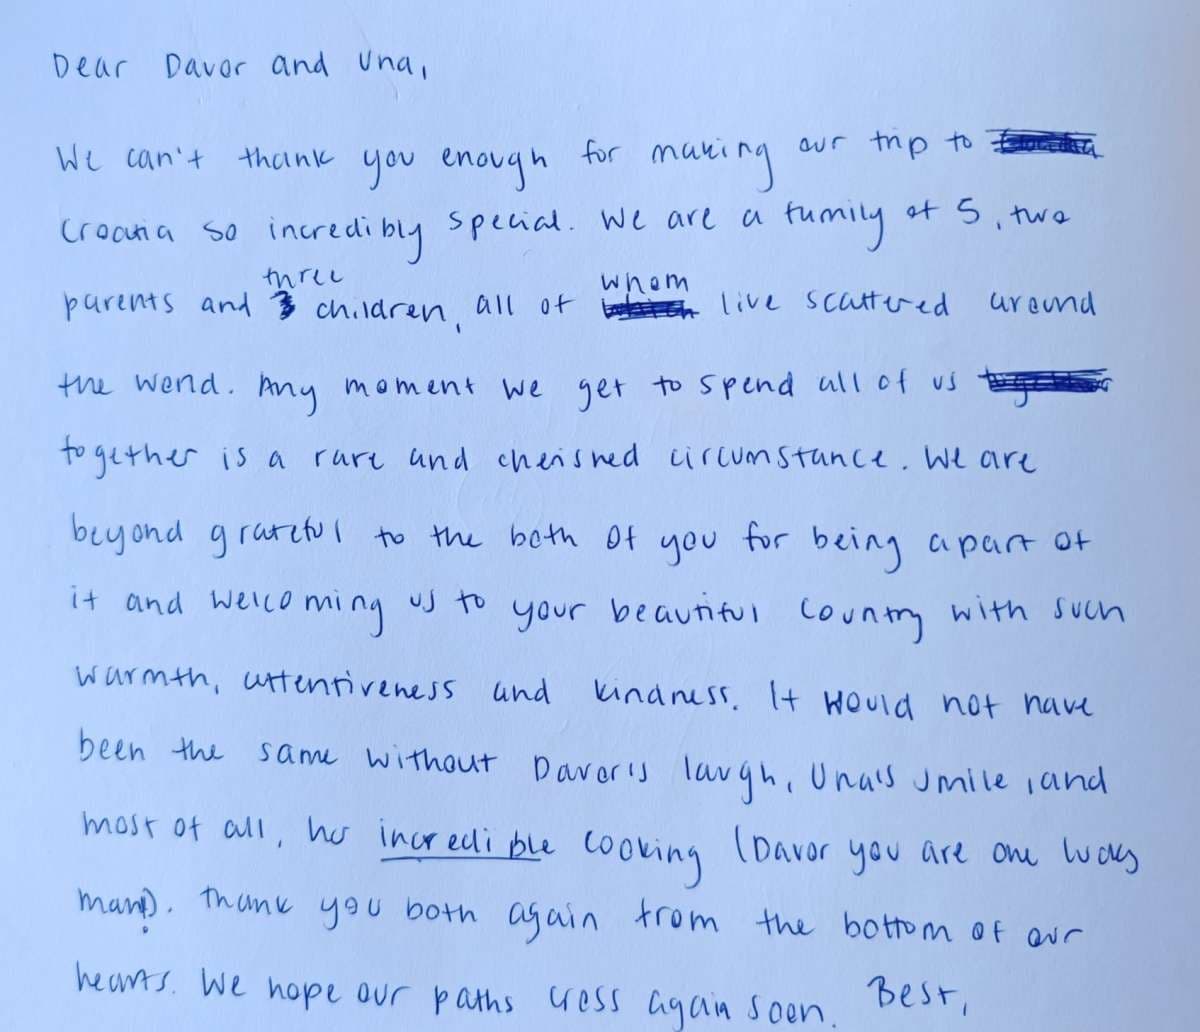 Dear Davor and Una,
We can't thank you enough for making our trip to
Croatia so incredibly special. We are a family of 5, two
three whom
parents and children, all of live scattered around
the world. Any moment we get to spend all of us
together is a rare and cherished circumstance. We are
beyond grateful to the both of you for being apart of
it and welcoming us to your beautiful country with such
warmth, attentiveness and kindness. It would not have
been the same without Davor's laugh, Una's smile, and
most of all, her incredible cooking (Davor you are one lucky
man!). Thank you both again from the bottom of our
hearts. We hope our paths cross again soon. Best,